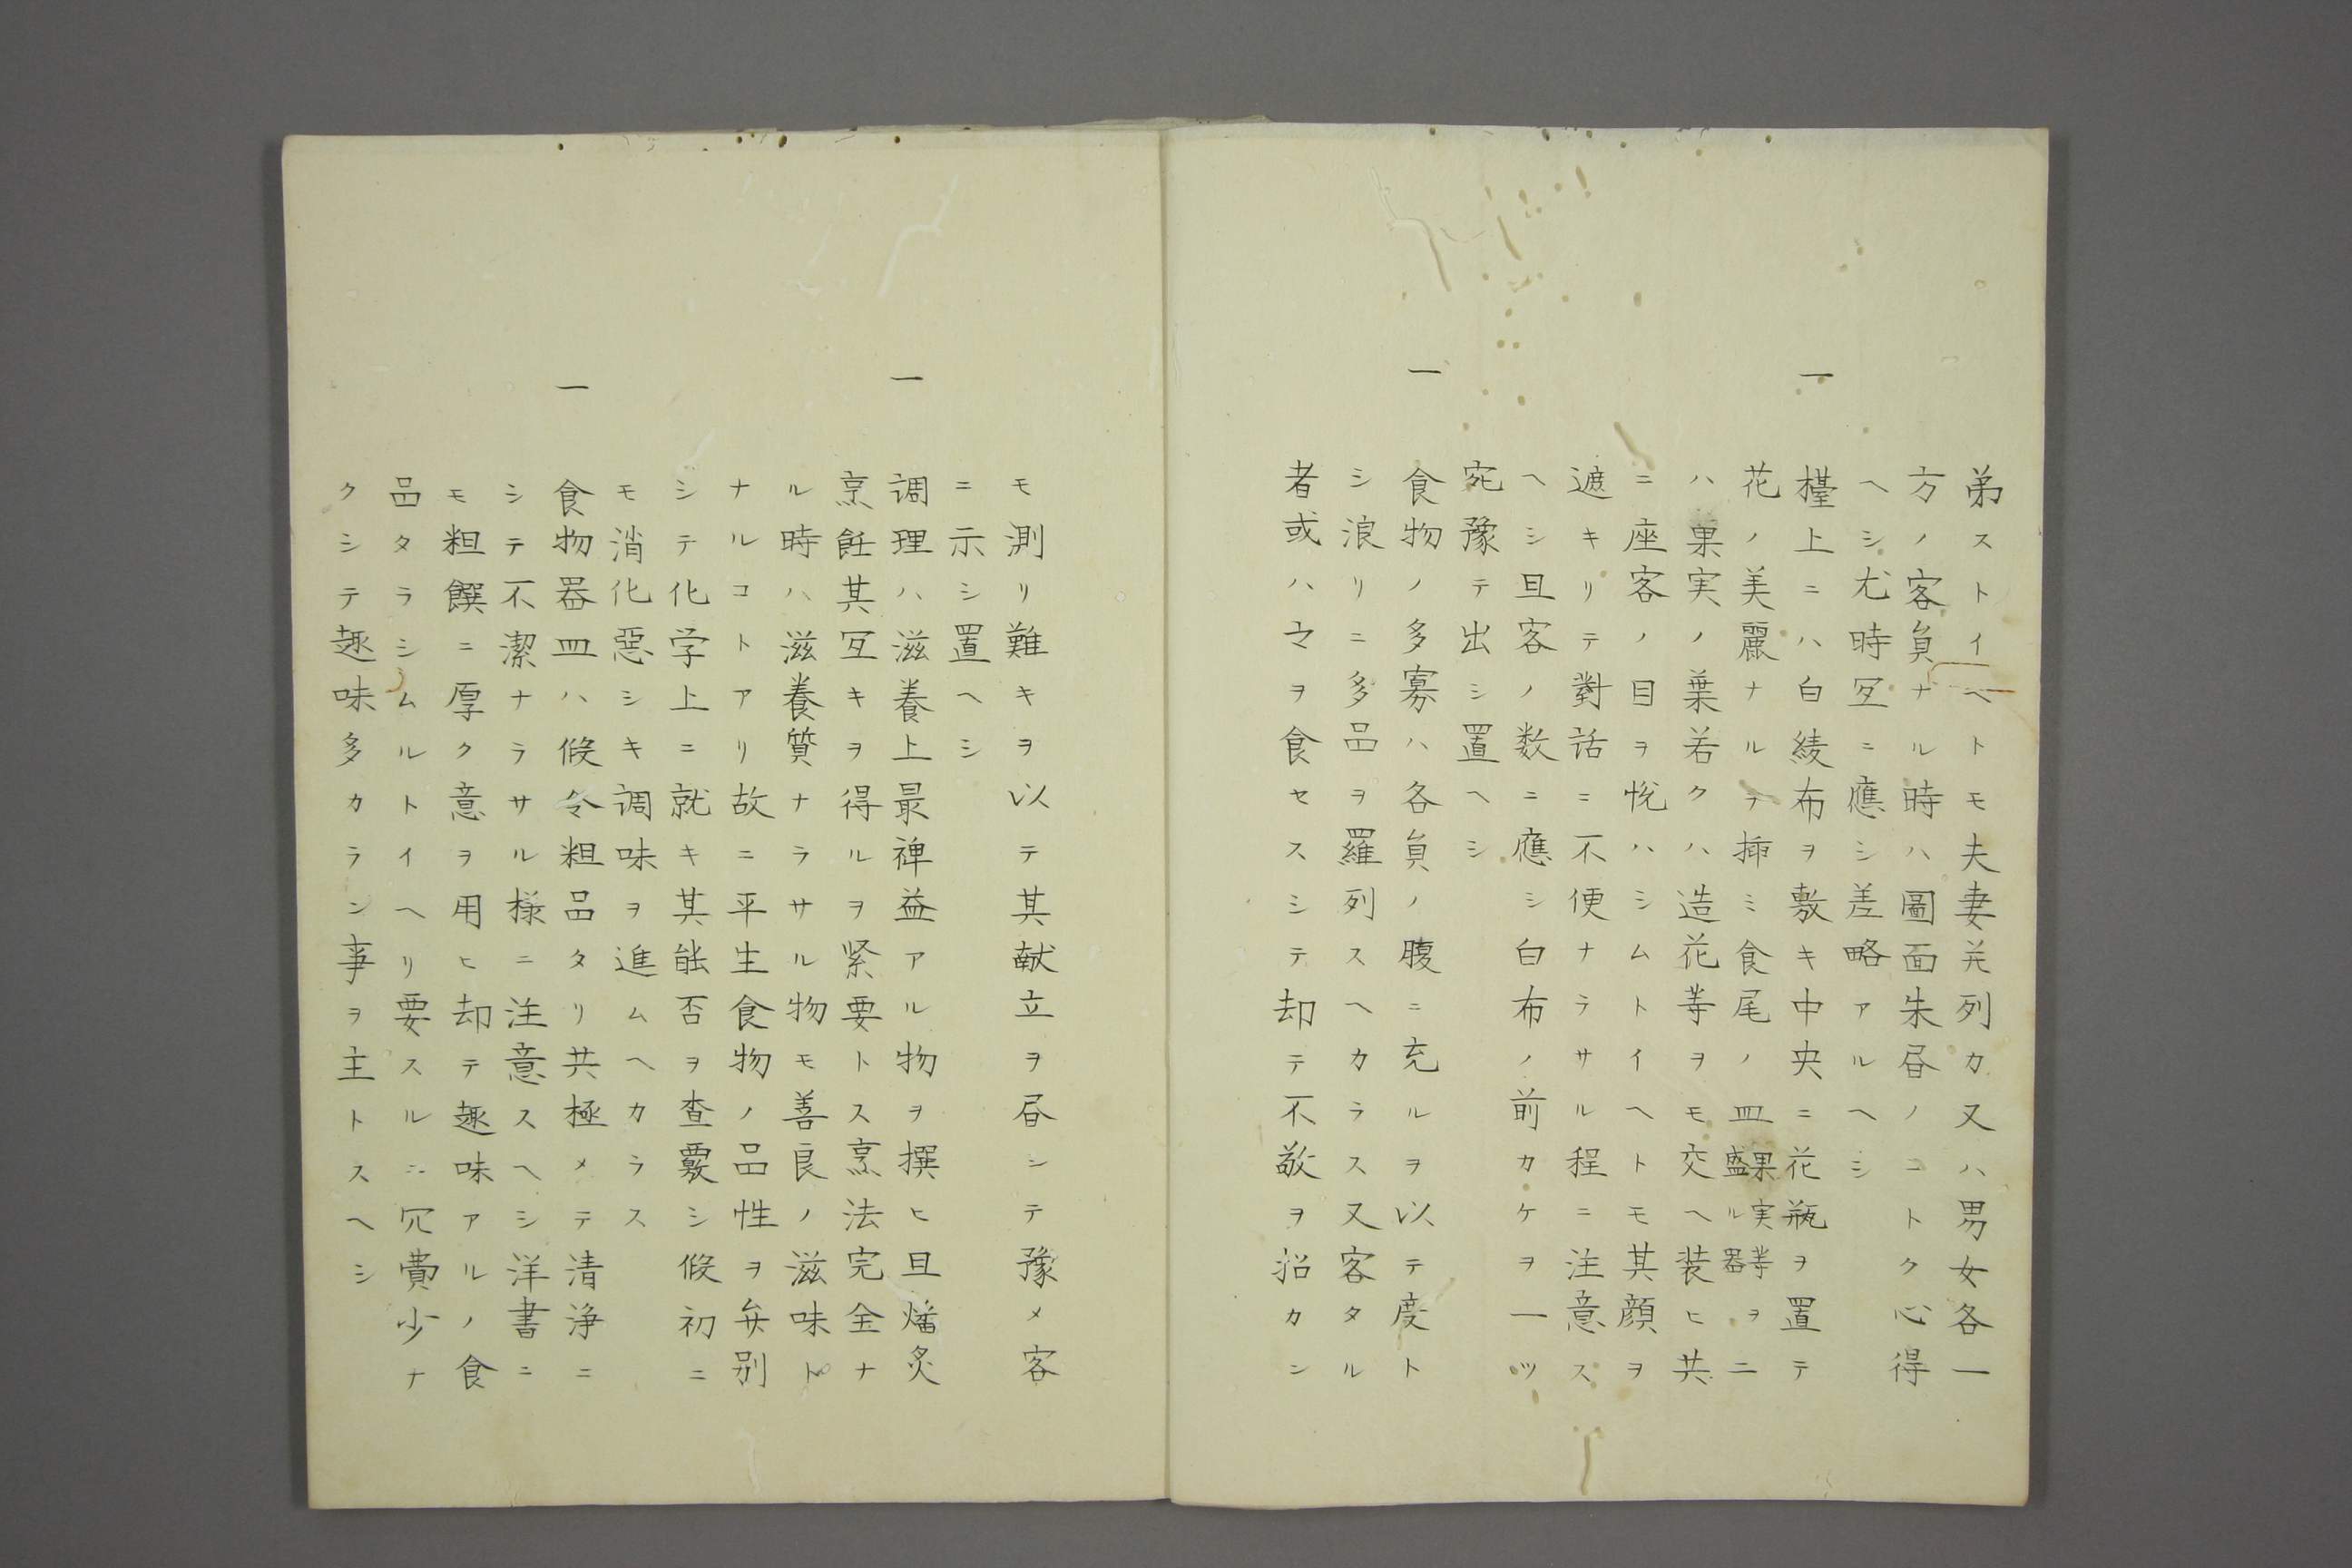 弟ストイヘトモ夫妻并列カ又ハ男女各一
方ノ客員ナル時ハ圖面朱昼ノコトク心得
ヘシ尤時宜ニ應シ差略アルヘシ
一 檯上ニハ白綾布ヲ敷キ中央ニ花瓶ヲ置テ
花ノ美麗ナルヲ挿ミ食尾ノ皿果実等ヲ盛ル器ニ
ハ果実ノ葉若クハ造花等ヲモ交ヘ装ヒ共
ニ座客ノ目ヲ悦ハシムトイヘトモ其顔ヲ
遮キリテ對話ニ不便ナラサル程ニ注意ス
ヘシ且客ノ数ニ應シ白布ノ前カケヲ一ツ
宛豫テ出シ置ヘシ
一 食物ノ多寡ハ各員ノ腹ニ充ルヲ以テ度ト
シ浪リニ多品ヲ羅列スヘカラス又客タル
者或ハ之ヲ食セスシテ却テ不敬ヲ招カン
モ測リ難キヲ以テ其献立ヲ昼シテ豫メ客
ニ示シ置ヘシ
一 調理ハ滋養上最裨益アル物ヲ撰ヒ且燔炙
烹飪其宜キヲ得ルヲ緊要トス烹法完全ナ
ル時ハ滋養質ナラサル物モ善良ノ滋味ト
ナルコトアリ故ニ平生食物ノ品性ヲ弁別
シテ化学上ニ就キ其能否ヲ査覈シ假初ニ
モ消化惡シキ調味ヲ進ムヘカラス
一 食物器皿ハ假令粗品タリ共極メテ清浄ニ
シテ不潔ナラサル様ニ注意スヘシ洋書ニ
モ粗饌ニ厚ク意ヲ用ヒ却テ趣味アルノ食
品タラシムルトイヘリ要スルニ冗費少ナ
クシテ趣味多カラン事ヲ主トスヘシ